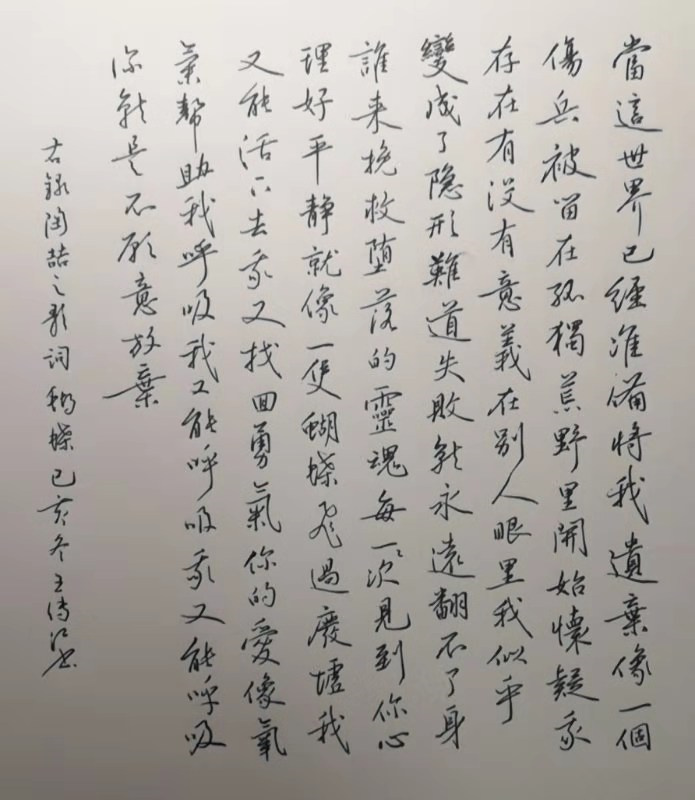 當這世界已經准備將我遺棄像一個
傷兵被留在孤獨荒野里開始懷疑我
存在有没有意義在别人眼里我似乎
變成了隐形難道失敗就永遠翻不了身
誰来挽救堕落的靈魂每一次見到你心
理好平静就像一隻蝴蝶飛過廢墟我
又能活下去我又找回勇氣你的愛像氧
氣帮助我呼吸我又能呼吸我又能呼吸
你就是不願意放棄
右録陶喆之歌詞蝴蝶已亥冬王傳